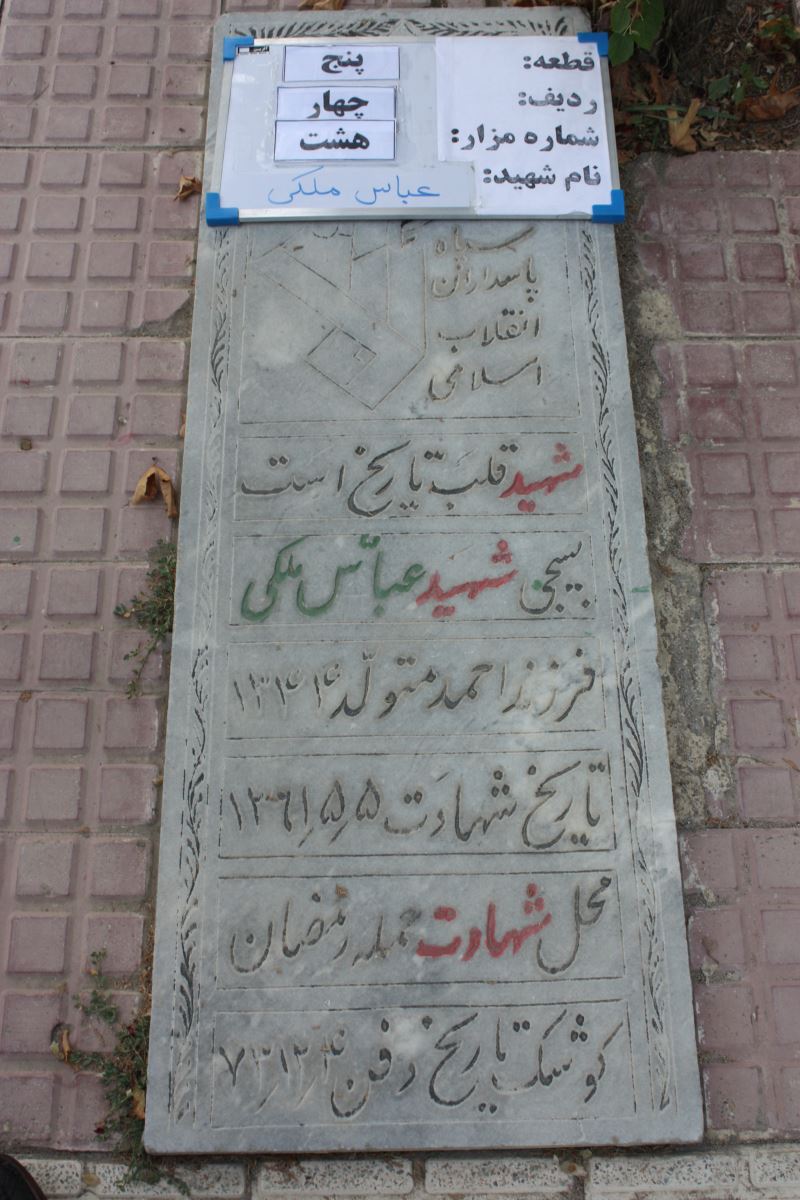 قطعه: پنج
ردیف: چهار
شماره مزار: هشت
نام شهید: عباس ملکی
سپاه
پاسداران
انقلاب
اسلامی
شهید قلب تاریخ است
بسیجی شهید عباس ملکی
فرزند احمد متولد ۱۳۴۴
تاریخ شهادت ۵ر۵ر۱۳۶۱
محل شهادت حمله رمضان
کوشک تاریخ دفن ۴ر۱۲ر۷۳